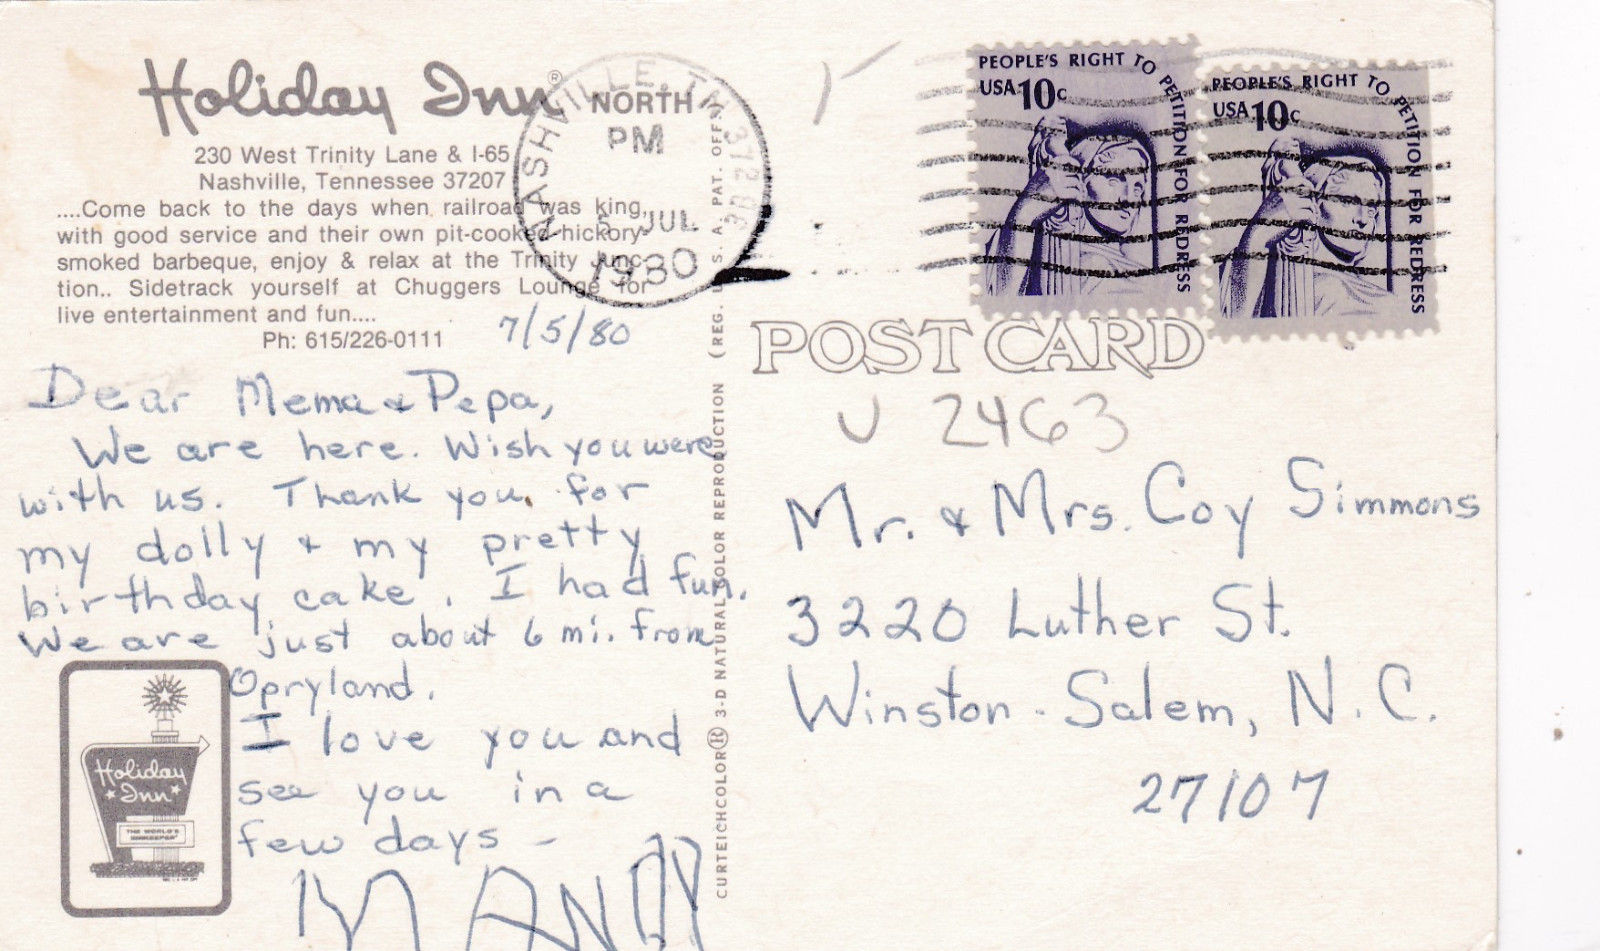 Holiday Inn®
230 West Trinity Lane & I-65
Nashville, Tennessee 37207
....Come back to the days when railroad was king,
with good service and their own pit-cooked hickory-
smoked barbeque, enjoy & relax at the Trinity Junc-
tion.. Sidetrack yourself at Chuggers Lounge for
live entertainment and fun....
Ph: 615/226-0111
NASHVILLE, TN 372
NORTH
PM
5 JUL
1980
PEOPLE'S RIGHT TO PETITION FOR REDRESS
USA 10c
PEOPLE'S RIGHT TO PETITION FOR REDRESS
USA 10c
7/5/80
Dear Mema & Pepa,
We are here. Wish you were
with us. Thank you for
my dolly & my pretty
birthday cake. I had fun.
We are just about 6 mi. from
Opryland.
I love you and
see you in a
few days -
MANDY
Holiday
Inn
THE WORLD'S
INNKEEPER
CURTEICHCOLOR® 3-D NATURAL COLOR REPRODUCTION (REG. U. S. A. PAT. OFF.)
POST CARD
U 2463
Mr. & Mrs. Coy Simmons
3220 Luther St.
Winston-Salem, N.C.
27107